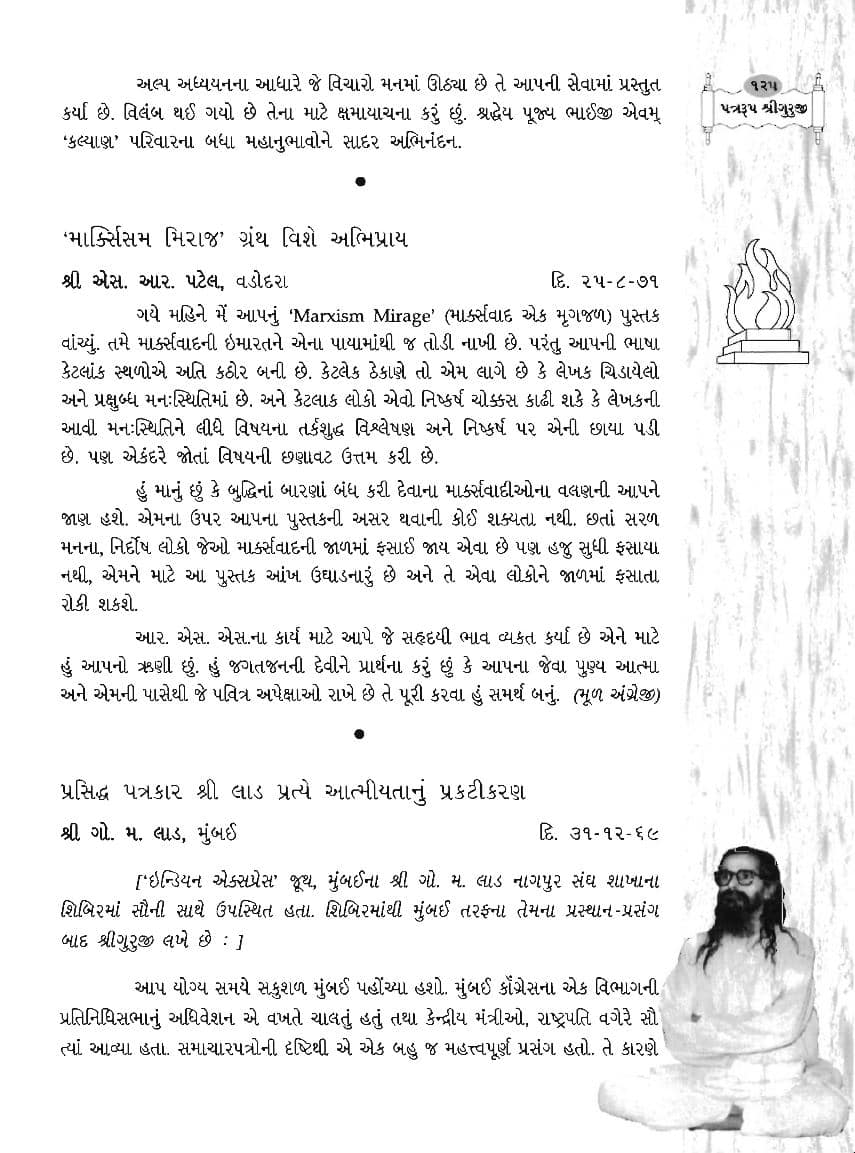 ૧૨૫
પત્રરૂપ શ્રીગુરુજી
અલ્પ અધ્યયનના આધારે જે વિચારો મનમાં ઊઠ્યા છે તે આપની સેવામાં પ્રસ્તુત
કર્યા છે. વિલંબ થઈ ગયો છે તેના માટે ક્ષમાયાચના કરું છું. શ્રદ્ધેય પૂજ્ય ભાઈજી એવમ્
‘કલ્યાણ’ પરિવારના બધા મહાનુભાવોને સાદર અભિનંદન.
●
‘માર્ક્સિસમ મિરાજ’ ગ્રંથ વિશે અભિપ્રાય
શ્રી એસ. આર. પટેલ, વડોદરા દિ. ૨૫-૮-૭૧
ગયે મહિને મેં આપનું ‘Marxism Mirage’ (માર્ક્સવાદ એક મૃગજળ) પુસ્તક
વાંચ્યું. તમે માર્ક્સવાદની ઇમારતને એના પાયામાંથી જ તોડી નાખી છે. પરંતુ આપની ભાષા
કેટલાંક સ્થળોએ અતિ કઠોર બની છે. કેટલેક ઠેકાણે તો એમ લાગે છે કે લેખક ચિડાયેલો
અને પ્રક્ષુબ્ધ મનઃસ્થિતિમાં છે. અને કેટલાક લોકો એવો નિષ્કર્ષ ચોક્કસ કાઢી શકે કે લેખકની
આવી મનઃસ્થિતિને લીધે વિષયના તર્કશુદ્ધ વિશ્લેષણ અને નિષ્કર્ષ પર એની છાયા પડી
છે. પણ એકંદરે જોતાં વિષયની છણાવટ ઉત્તમ કરી છે.
હું માનું છું કે બુદ્ધિનાં બારણાં બંધ કરી દેવાના માર્ક્સવાદીઓના વલણની આપને
જાણ હશે. એમના ઉપર આપના પુસ્તકની અસર થવાની કોઈ શક્યતા નથી. છતાં સરળ
મનના, નિર્દોષ લોકો જેઓ માર્ક્સવાદની જાળમાં ફસાઈ જાય એવા છે પણ હજુ સુધી ફસાયા
નથી, એમને માટે આ પુસ્તક આંખ ઉઘાડનારું છે અને તે એવા લોકોને જાળમાં ફસાતા
રોકી શકશે.
આર. એસ. એસ.ના કાર્ય માટે આપે જે સહૃદયી ભાવ વ્યકત કર્યા છે એને માટે
હું આપનો ઋણી છું. હું જગતજનની દેવીને પ્રાર્થના કરું છું કે આપના જેવા પુણ્ય આત્મા
અને એમની પાસેથી જે પવિત્ર અપેક્ષાઓ રાખે છે તે પૂરી કરવા હું સમર્થ બનું. (મૂળ અંગ્રેજી)
●
પ્રસિદ્ધ પત્રકાર શ્રી લાડ પ્રત્યે આત્મીયતાનું પ્રકટીકરણ
શ્રી ગો. મ. લાડ, મુંબઈ દિ. ૩૧-૧૨-૬૯
[‘ઇન્ડિયન એક્સપ્રેસ’ જૂથ, મુંબઈના શ્રી ગો. મ. લાડ નાગપુર સંઘ શાખાના
શિબિરમાં સૌની સાથે ઉપસ્થિત હતા. શિબિરમાંથી મુંબઈ તરફના તેમના પ્રસ્થાન-પ્રસંગ
બાદ શ્રીગુરુજી લખે છે : ]
આપ યોગ્ય સમયે સકુશળ મુંબઈ પહોંચ્યા હશો. મુંબઈ કૉંગ્રેસના એક વિભાગની
પ્રતિનિધિસભાનું અધિવેશન એ વખતે ચાલતું હતું તથા કેન્દ્રીય મંત્રીઓ, રાષ્ટ્રપતિ વગેરે સૌ
ત્યાં આવ્યા હતા. સમાચારપત્રોની દૃષ્ટિથી એ એક બહુ જ મહત્ત્વપૂર્ણ પ્રસંગ હતો. તે કારણે